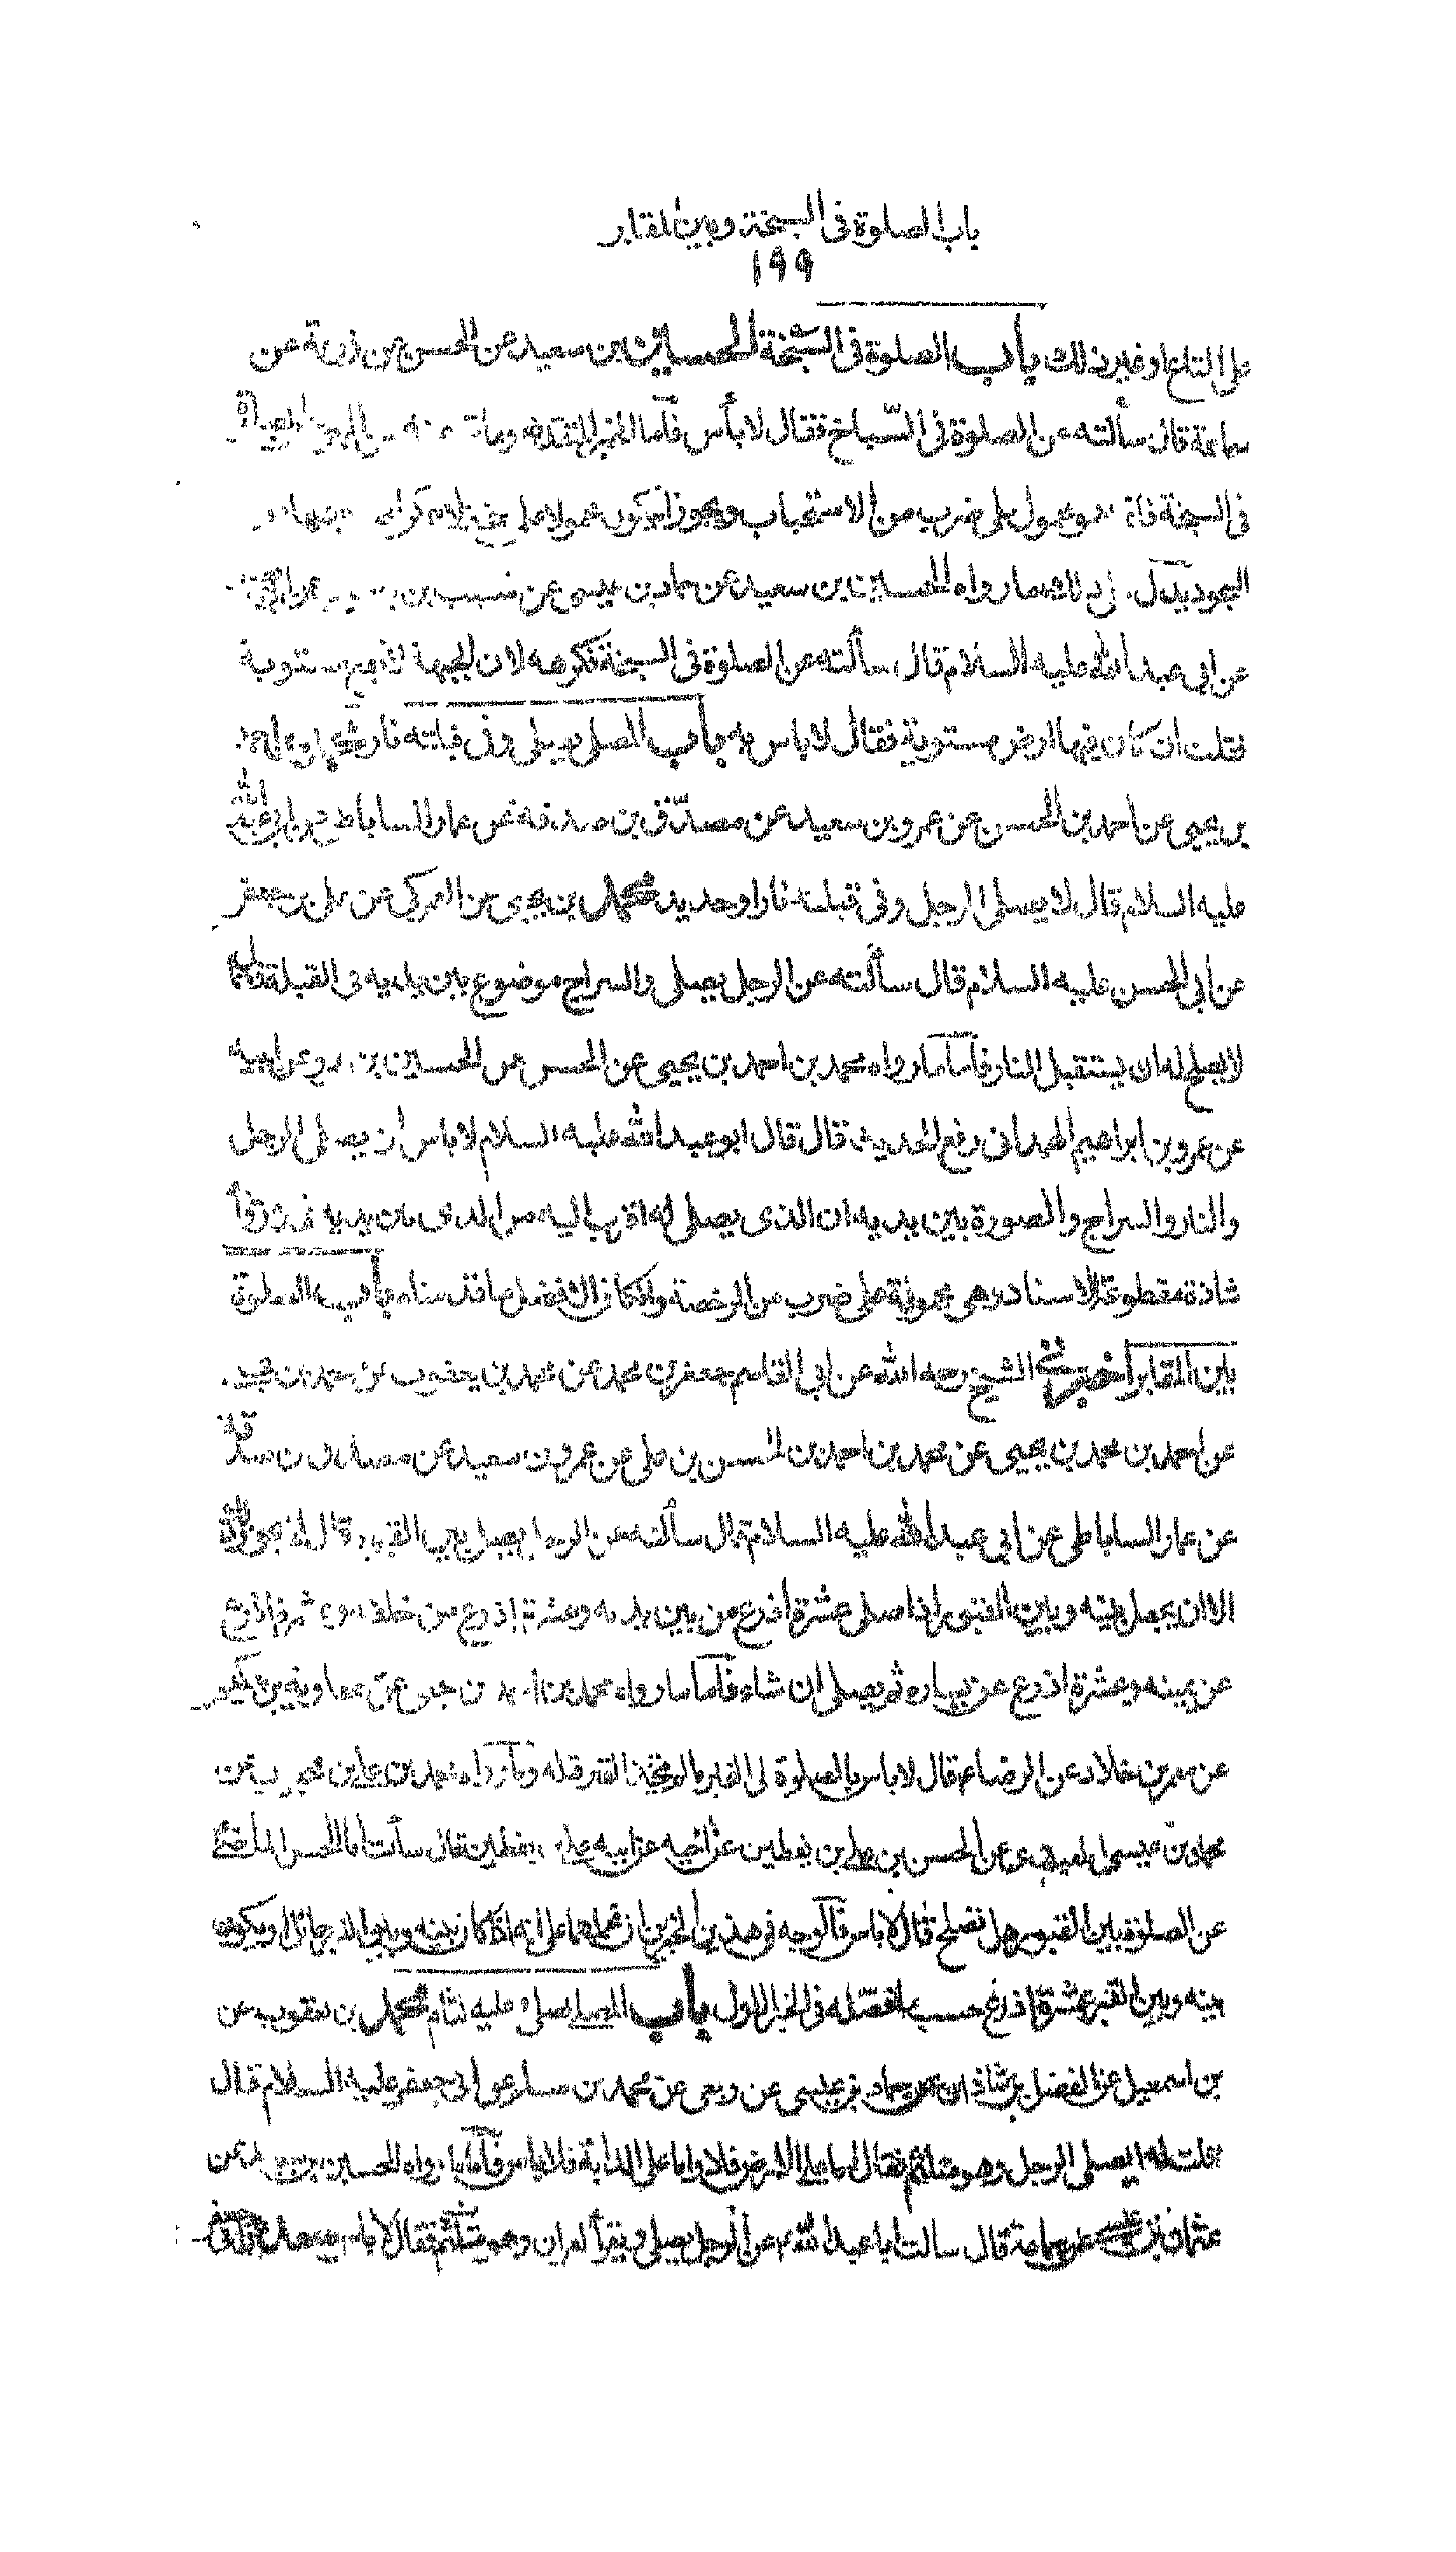 باب الصلوة فى السبخة وبين المقابر
١٩٩
على الثلج او غير ذلك باب الصلوة فى السّبخة الحسين بن سعيد عن الحسن عن زرعة عن
سماعة قال سألته عن الصلوة فى السّباخ فقال لا بأس فأما الخبر المتقدم
فى السبخة محمول على ضرب من الاستحباب ويجوز ان يكون محمولا على
السجود يدل على ذلك ما رواه الحسين بن سعيد عن حماد بن عيسى عن شعيب عن ابى بصير
عن ابى عبد الله عليه السلام قال سألته عن الصلوة فى السبخة فكرهه لان الجبهة لا تقع مستوية
فقلت ان كان فيها ارض مستوية فقال لا باس به باب المصلى يصلى وفى قبلته نار محمد
بن يحيى عن احمد بن الحسن عن عمرو بن سعيد عن مصدّق بن صدقه عن عمار الساباطى عن ابى عبد الله
عليه السلام قال لا يصلى الرجل وفى قبلته نار او حديد محمد بن يحيى عن العمركى عن على بن جعفر
عن أبى الحسن عليه السلام قال سألته عن الرجل يصلى والسراج موضوع بين يديه فى القبلة فقال
لا يصلح له ان يستقبل النار فأما ما رواه محمد بن احمد بن يحيى عن الحسن عن الحسين بن عمرو عن ابيه
عن عمرو بن ابراهيم الهمدانى رفع الحديث قال قال ابو عبد الله عليه السلام لا باس ان يصلى الرجل
والنار والسراج والصورة بين يديه ان الذى يصلى له اقرب اليه من الذى بين يديه
شاذة مقطوعة الاسناد وهى محمولة على ضرب من الرخصة وان كان الافضل ما قدمناه باب الصلوة
بين المقابر أخبرنى الشيخ رحمه الله عن ابى القاسم جعفر بن محمد عن محمد بن يعقوب عن محمد بن يحيى
عن احمد بن محمد بن يحيى عن محمد بن احمد بن الحسن بن على عن عمرو بن سعيد عن مصدق بن صدقة
عن عمار الساباطى عن ابى عبد الله عليه السلام قال سألته عن الرجل يصلى بين القبور قال لا يجوز ذلك
الا ان يجعل بينه وبين القبور اذا صلى عشرة أذرع من بين يديه وعشرة اذرع من خلفه وعشرة اذرع
عن يمينه وعشرة اذرع عن يساره ثم يصلى ان شاء فأما ما رواه محمد بن عن معاوية بن حكيم
عن معمر بن خلاد عن الرضا ع قال لا باس بالصلوة الى القبر ما لم يتخذ القبر قبله وما رواه محمد بن على بن محبوب عن
محمد بن عيسى عن الحسن بن على بن يقطين عن اخيه عن ابيه على بن يقطين قال سألت ابا الحسن الماضى ع
عن الصلوة بين القبور هل تصلح قال لا باس فالوجه فى هذين الخبرين ان نحملهما على انه اذا كان بينه وبين القبر حائل او يكون
بينه وبين القبر عشرة اذرع حسب ما فصّله فى الخبر الاول باب المصلى يصلى وعليه لثام محمد بن يعقوب عن
بن اسمعيل عن الفضل بن شاذان عن حماد بن عيسى عن ربعى عن محمد بن مسلم عن ابى جعفر عليه السلام قال
قلت له ايصلى الرجل وهو متلثم فقال اما على الارض فلا واما على الدابّة فلا باس فأما ما رواه الحسين بن سعيد عن
عثمان بن عيسى عن سماعة قال سالت ابا عبد الله ع عن الرجل يصلى ويقرأ القران وهو متلثم فقال لا باس